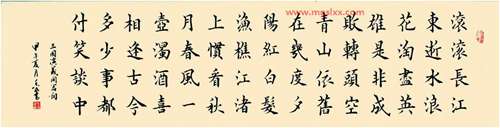 滚滚長江
東逝水浪
花淘盡英
雄是非成
敗轉頭空
青山依舊
在幾度夕
陽紅白髮
漁樵江渚
上慣看秋
月春風一
壺濁酒喜
相逢古今
多少事都
付笑談中
甲午夏月